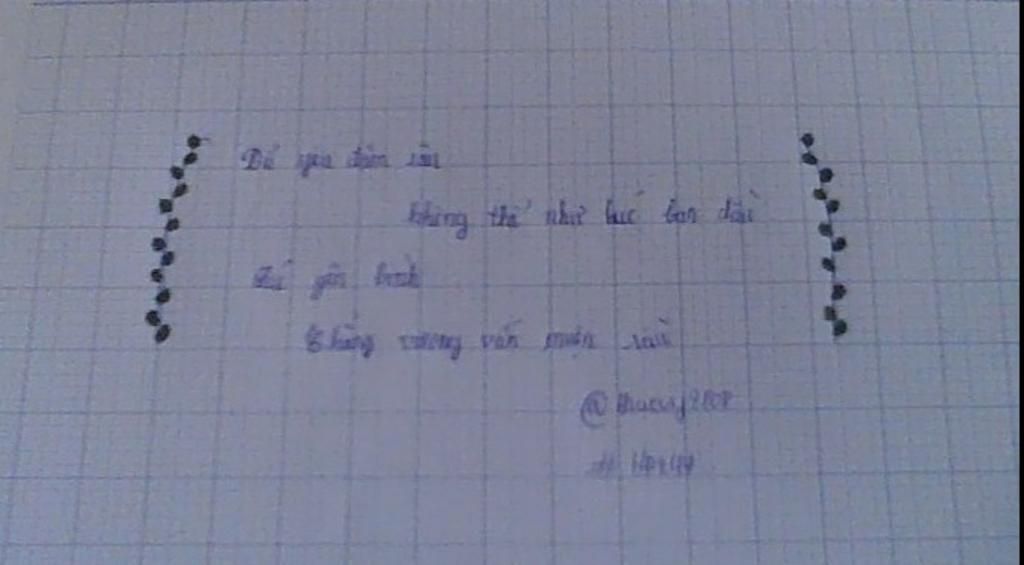 Để yêu đậm sâu
không thể như lúc ban đầu
yên bình
Chẳng vương vấn muộn sầu